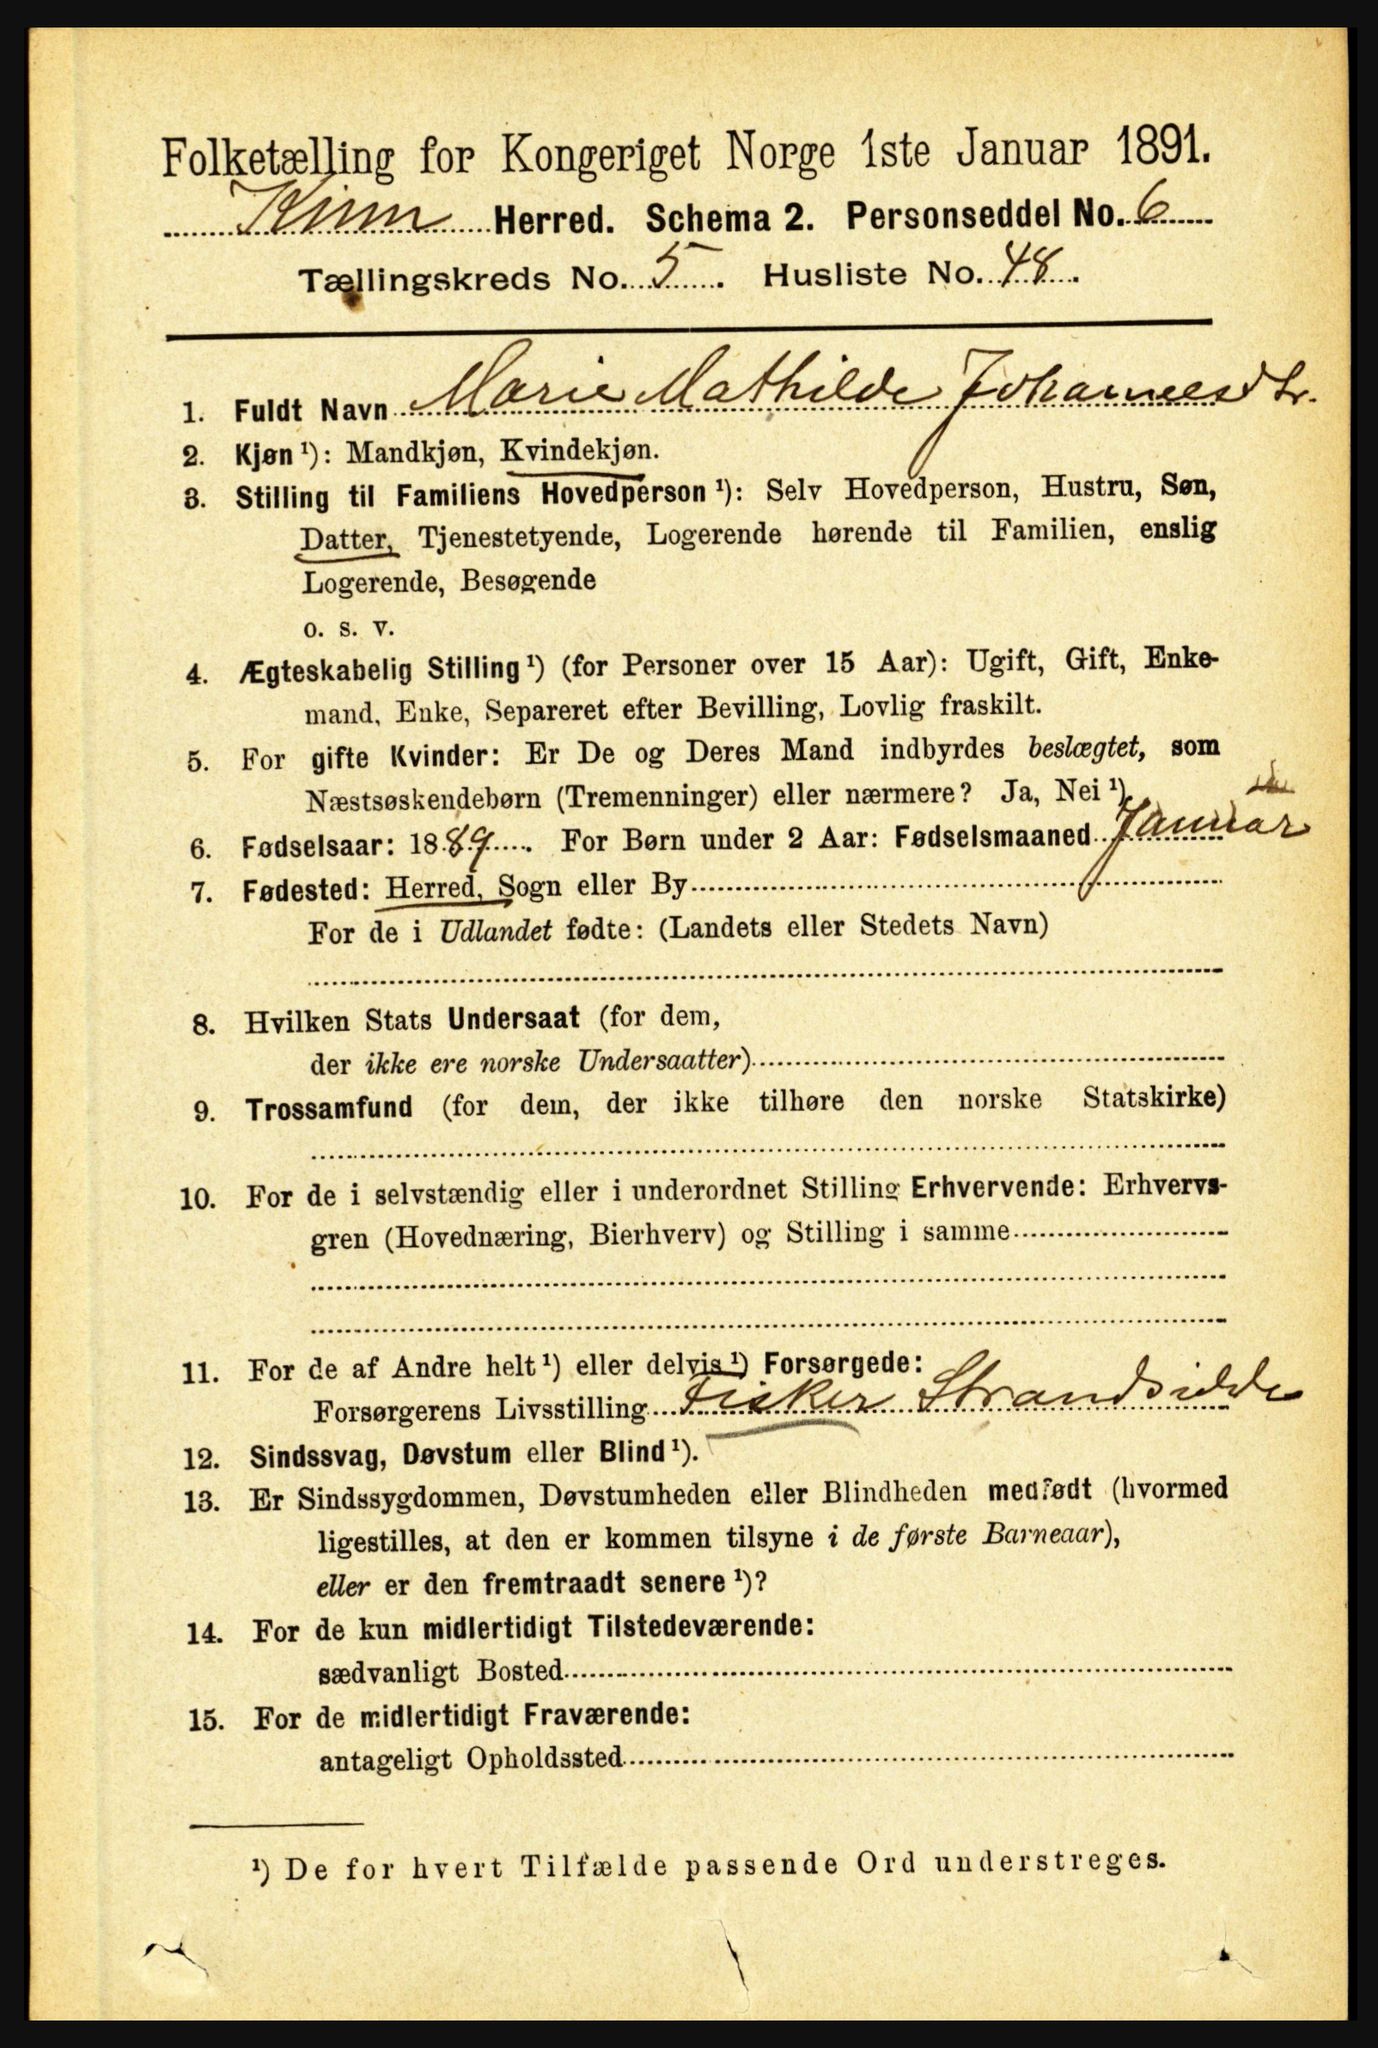 Folketælling for Kongeriget Norge 1ste Januar 1891.
Kinn Herred. Schema 2. Personseddel No. 6
Tællingskreds No. 5. Husliste No. 48.
1. Fuldt Navn Marie Mathilde Johannesdtr.
2. Kjøn ¹): Mandkjøn, Kvindekjøn.
3. Stilling til Familiens Hovedperson ¹): Selv Hovedperson, Hustru, Søn,
Datter, Tjenestetyende, Logerende hørende til Familien, enslig
Logerende, Besøgende
o. s. v.
4. Ægteskabelig Stilling ¹) (for Personer over 15 Aar): Ugift, Gift, Enke-
mand, Enke, Separeret efter Bevilling, Lovlig fraskilt.
5. For gifte Kvinder: Er De og Deres Mand indbyrdes beslægtet, som
Næstsøskendebørn (Tremenninger) eller nærmere? Ja, Nei ¹)
6. Fødselsaar: 1889. For Børn under 2 Aar: Fødselsmaaned Januar
7. Fødested: Herred, Sogn eller By
For de i Udlandet fødte: (Landets eller Stedets Navn)
8. Hvilken Stats Undersaat (for dem,
der ikke ere norske Undersaatter)
9. Trossamfund (for dem, der ikke tilhøre den norske Statskirke)
10. For de i selvstændig eller i underordnet Stilling Erhvervende: Erhvervs-
gren (Hovednæring, Bierhverv) og Stilling i samme
11. For de af Andre helt ¹) eller delvis ¹) Forsørgede:
Forsørgerens Livsstilling Fisker Strandsidde
12. Sindssvag, Døvstum eller Blind ¹).
13. Er Sindssygdommen, Døvstumheden eller Blindheden medfødt (hvormed
ligestilles, at den er kommen tilsyne i de første Barneaar),
eller er den fremtraadt senere ¹)?
14. For de kun midlertidigt Tilstedeværende:
sædvanligt Bosted
15. For de midlertidigt Fraværende:
antageligt Opholdssted
¹) De for hvert Tilfælde passende Ord understreges.